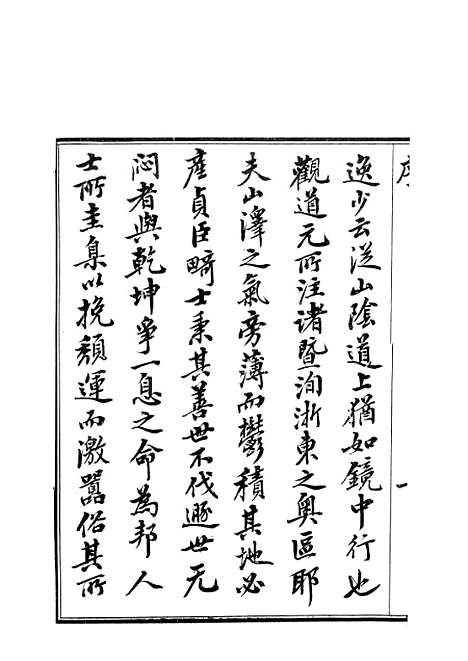 序
一
逸少云從山陰道上猶如鏡中行也
觀道元所注諸暨洵浙東之奧區耶
夫山澤之氣旁薄而鬱積其地必
產貞臣畸士秉其善世不伐遯世无
悶者與乾坤爭一息之命為邦人
士所圭臬以挽頹運而激囂俗其所